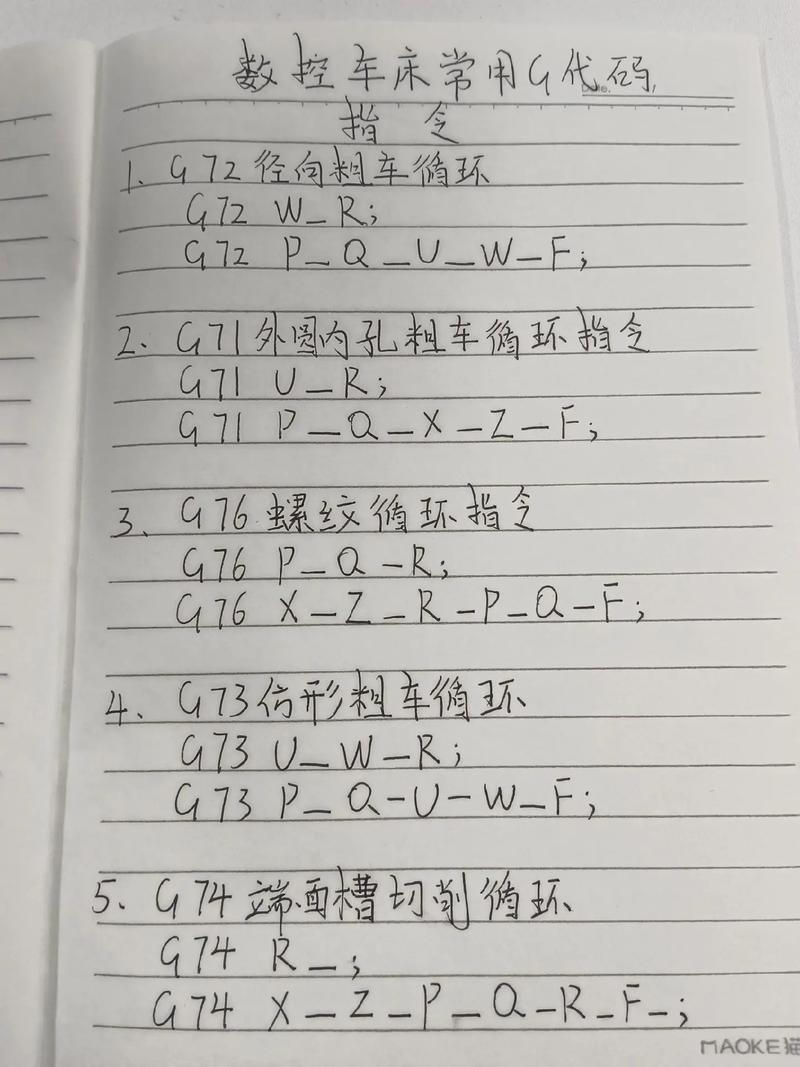 数控车床常用G代码
指令
1、G72径向粗车循环
G72 W_R;
G72 P_Q_U_W_F;
2、G71外圆内孔粗车循环指令
G71 U_R;
G71 P_Q_X_Z_F;
3、G76螺纹循环指令
G76 P_Q_R;
G76 X_Z_R_P_Q_F;
4、G73仿形粗车循环
G73 U_W_R;
G73 P_Q_U_W_F;
5、G74端面槽切削循环
G74 R_;
G74 X_Z_P_Q_R_F_;
MAOKE猫